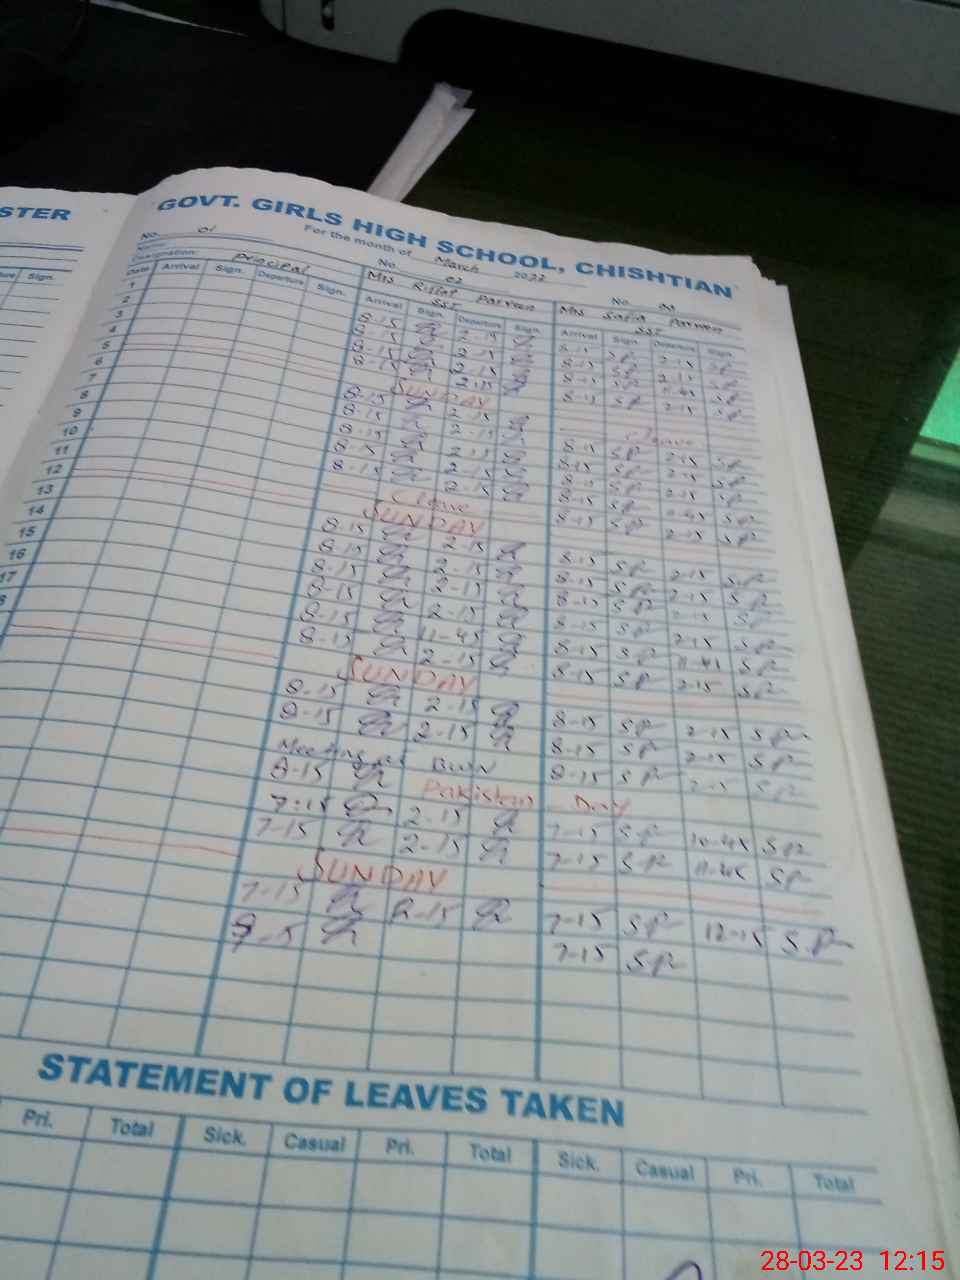 STER
GOVT. GIRLS HIGH SCHOOL, CHISHTIAN
For the month of March 2022
No. 01 No. 02 No.
Name: Mrs Riffat Parveen Mrs Safia Parveen
Designation: Principal SST SST
Sign. Date Arrival Sign. Departure Sign. Arrival Sign. Departure Sign. Arrival Sign. Departure Sign.
1 8-15 2-15 8-15 SP 2-15 SP
2 8-15 2-15 8-15 SP 2-15 SP
3 8-15 2-15 8-15 SP 11-45 SP
4 8-15 2-15 8-15 SP 2-15 SP
5 SUNDAY
6 8-15 2-15 C leave
7 8-15 2-15 8-15 SP 2-15 SP
8 8-15 2-15 8-15 SP 2-15 SP
9 8-15 2-15 8-15 SP 2-15 SP
10 8-15 2-15 8-15 SP 11-45 SP
11 C leave 8-15 SP 2-15 SP
12 SUNDAY
13 8-15 2-15 8-15 SP 2-15 SP
14 8-15 2-15 8-15 SP 2-15 SP
15 8-15 2-15 8-15 SP 2-15 SP
16 8-15 2-15 8-15 SP 2-15 SP
17 8-15 11-45 8-15 SP 11-45 SP
8-15 2-15 8-15 SP 2-15 SP
SUNDAY
8-15 2-15 8-15 SP 2-15 SP
8-15 2-15 8-15 SP 2-15 SP
Meeting at BWN 8-15 SP 2-15 SP
8-15 Pakistan Day
7-15 2-15 7-15 SP 10-45 SP
7-15 2-15 7-15 SP 11-45 SP
SUNDAY
7-15 2-15 7-15 SP 12-15 SP
7-15 SP
STATEMENT OF LEAVES TAKEN
Pri. Total Sick. Casual Pri. Total Sick. Casual Pri. Total
28-03-23 12:15